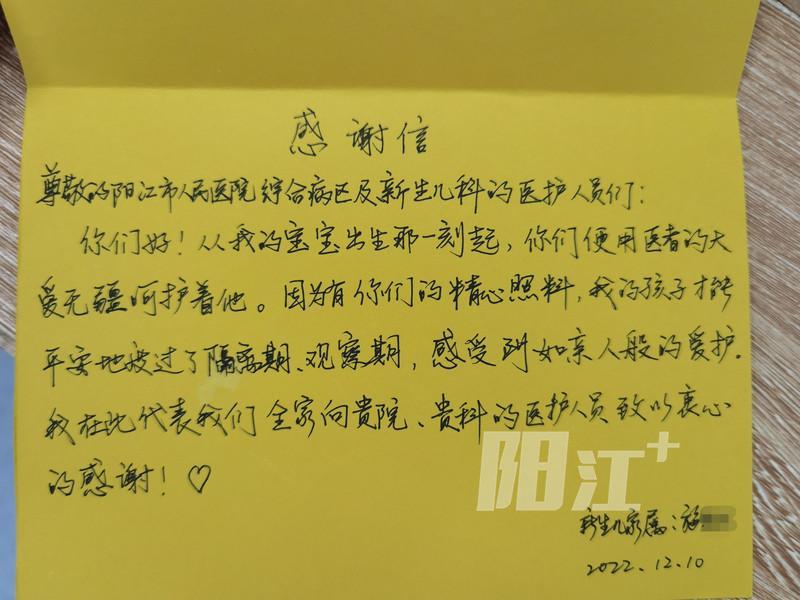 感谢信
尊敬的阳江市人民医院综合病区及新生儿科的医护人员们：
你们好！从我的宝宝出生那一刻起，你们便用医者的大
爱无疆呵护着他。因为有你们的精心照料，我的孩子才能
平安地度过了隔离期、观察期，感受到如亲人般的爱护.
我在此代表我们全家向贵院、贵科的医护人员致以衷心
的感谢！♡
阳江+
新生儿家属：施
2022.12.10